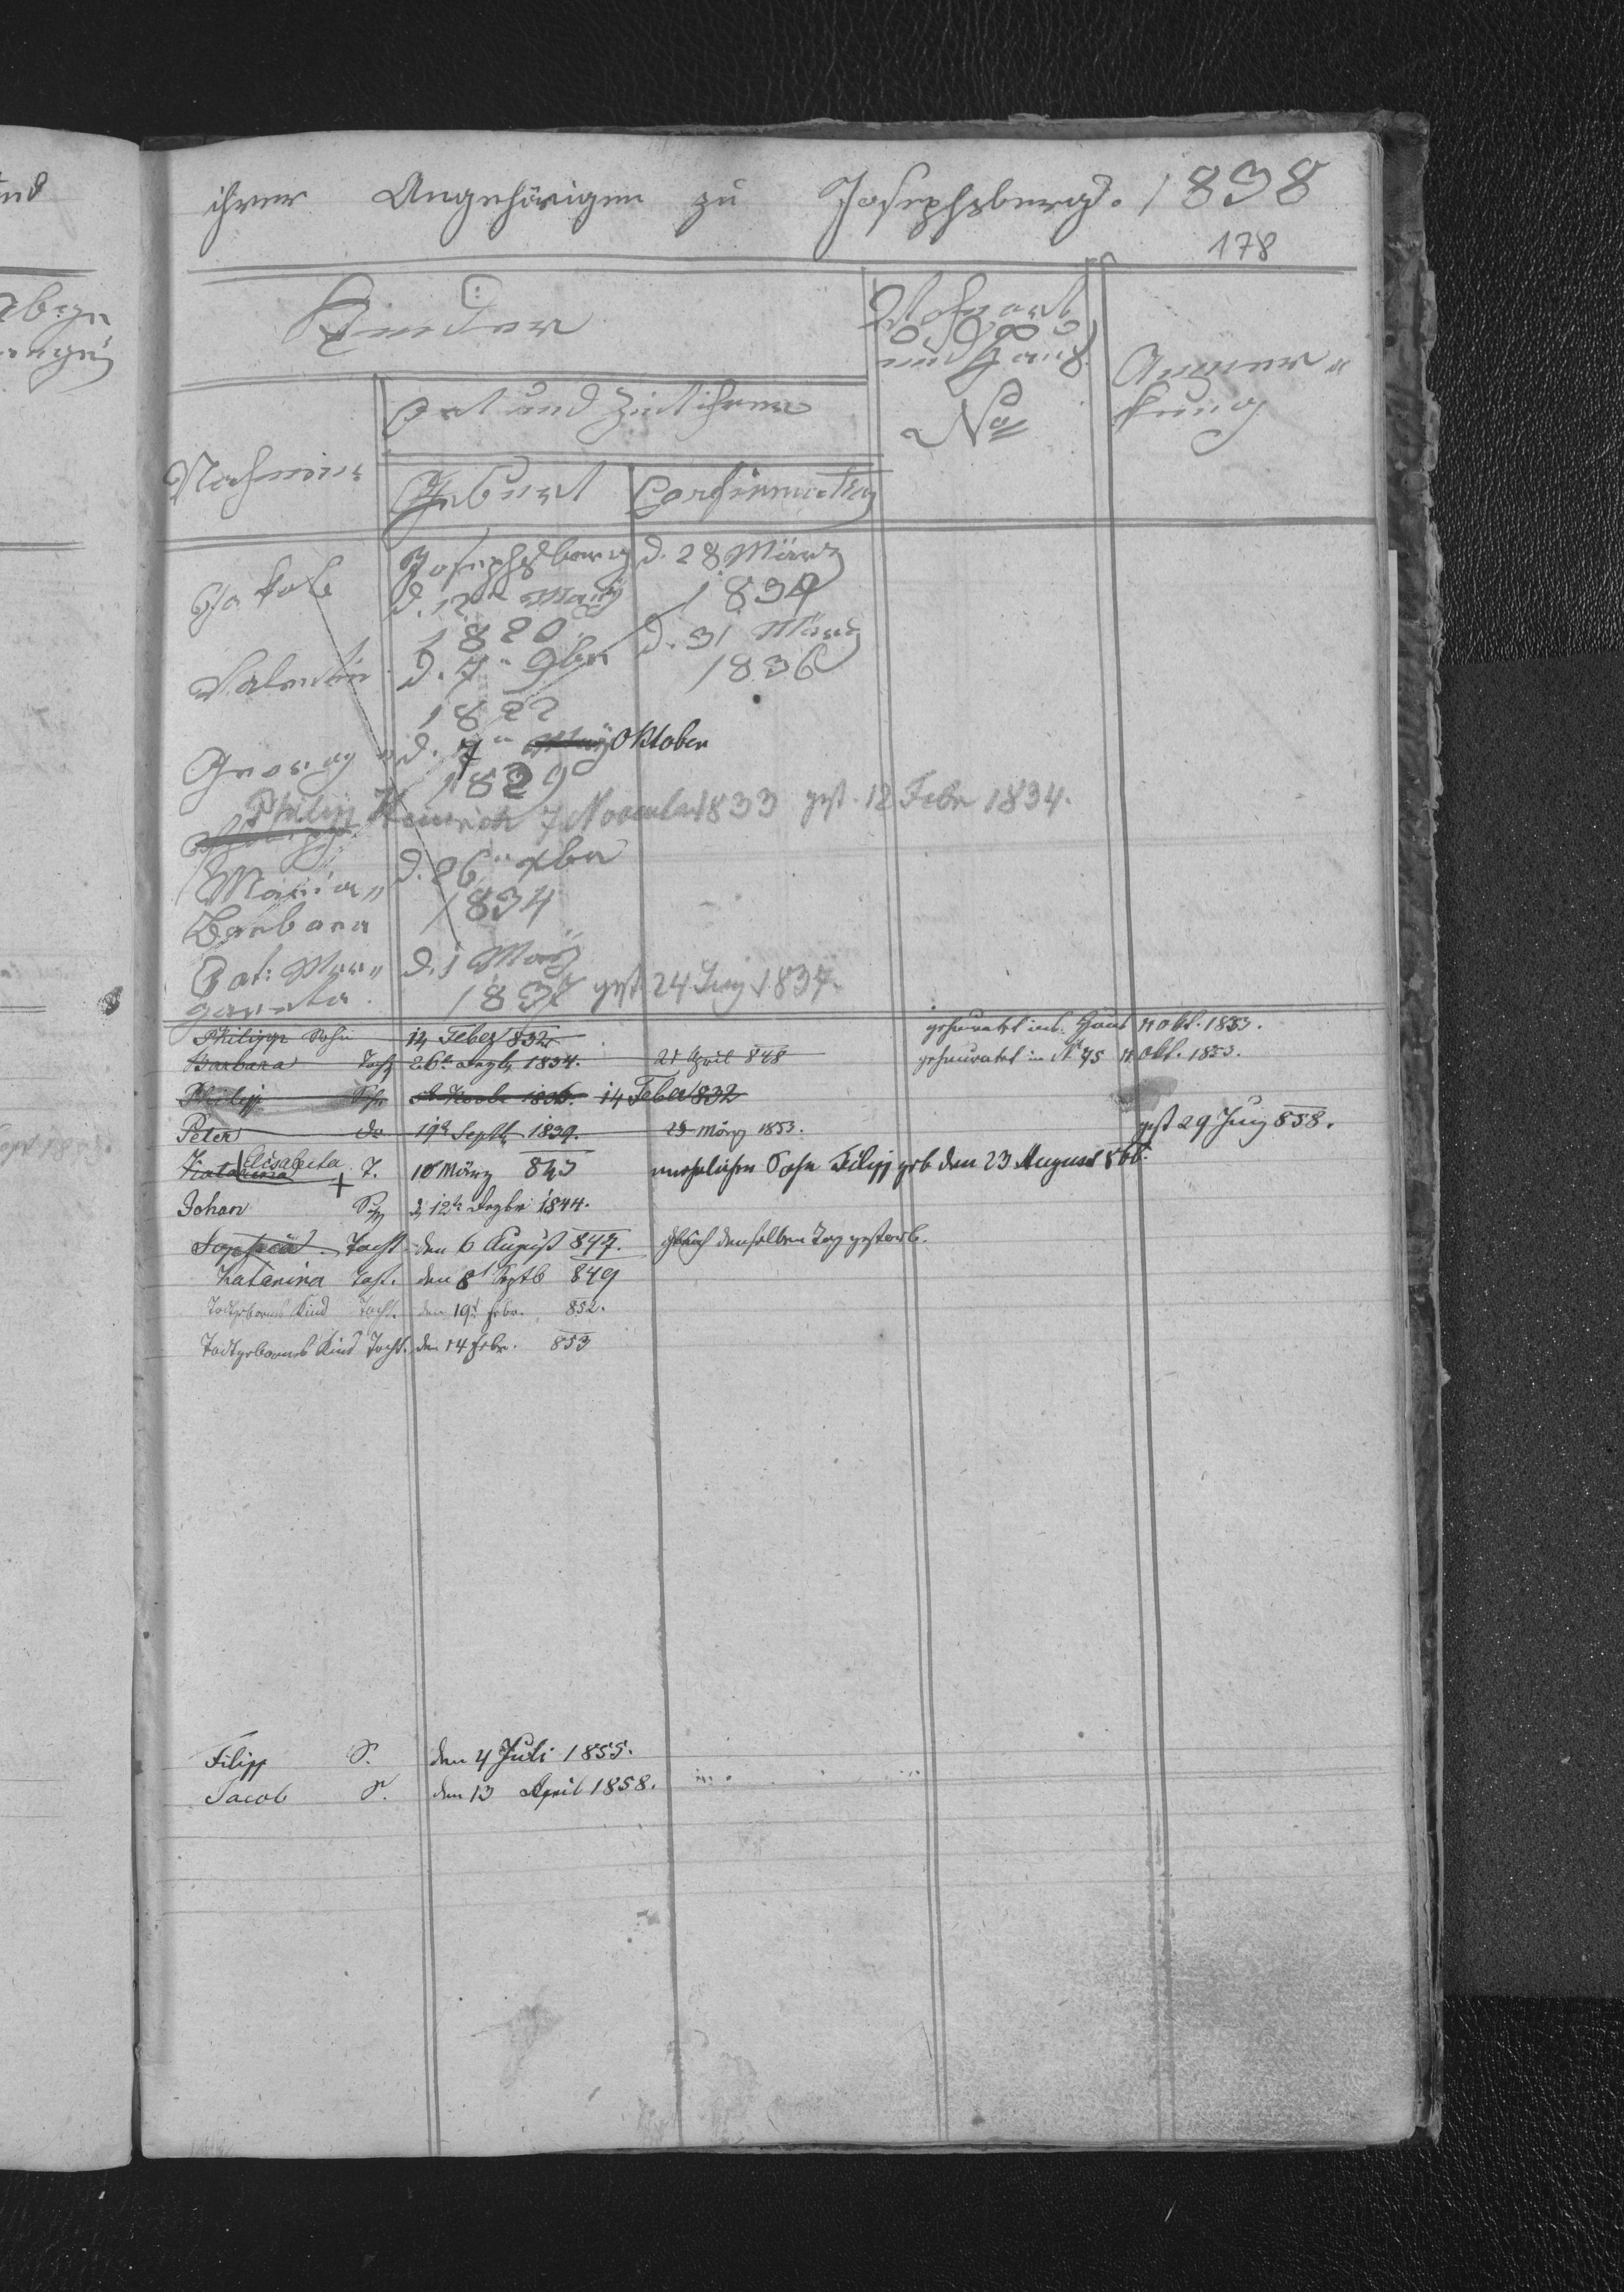 ihrer Angehörigen zu Josephsberg. 1838
178
Kinder
Wohnort
und Haus
No
Anmer"
kung
Ort und Zeit ihrer
Nahmen
Geburt
Confirmation
Jakob
Josephsberg
d. 12n May
1820
d. 28 März
1834
Valentin
d. 7n 9ber
1822
d. 31 März
1836
Georg
d. 7n May Oktober
1829
Philipp Heinrich 7 November 1833 gest. 12 Febr 1834.
Maria"
Barbara
d. 26n xber
1834
Cat: Mar"
gareta
d. 1 May
1837 gest 24 Juny 1837.
Philipp Sohn 14 Feber 832 geheuratet ins Haus 11 Okt. 1853.
Barbara Toch 26n Dezb 1834. 21 April 848 geheuratet in No 75 11 Okt. 1853.
Philipp Sohn 14 Feber 832
Peter do 19n Septb 1839. 23 März 1853. gest 29 Juny 858.
Katarina Elisabeta T. 10 März 843 unehelichen Sohn Filipp geb den 23 August 866.
Johan Sohn d 12n Dezber 1844.
Sophia Tocht den 6 August 847. gleich denselben Tag gestorb.
Katarina Toch. den 8t Septb 849
Todtgebornes Kind Tocht. den 19t Febr. 852.
Todtgebornes Kind Tocht. den 14 Febr. 853
Filipp S. den 4 Juli 1855.
Jacob S. den 13 April 1858.